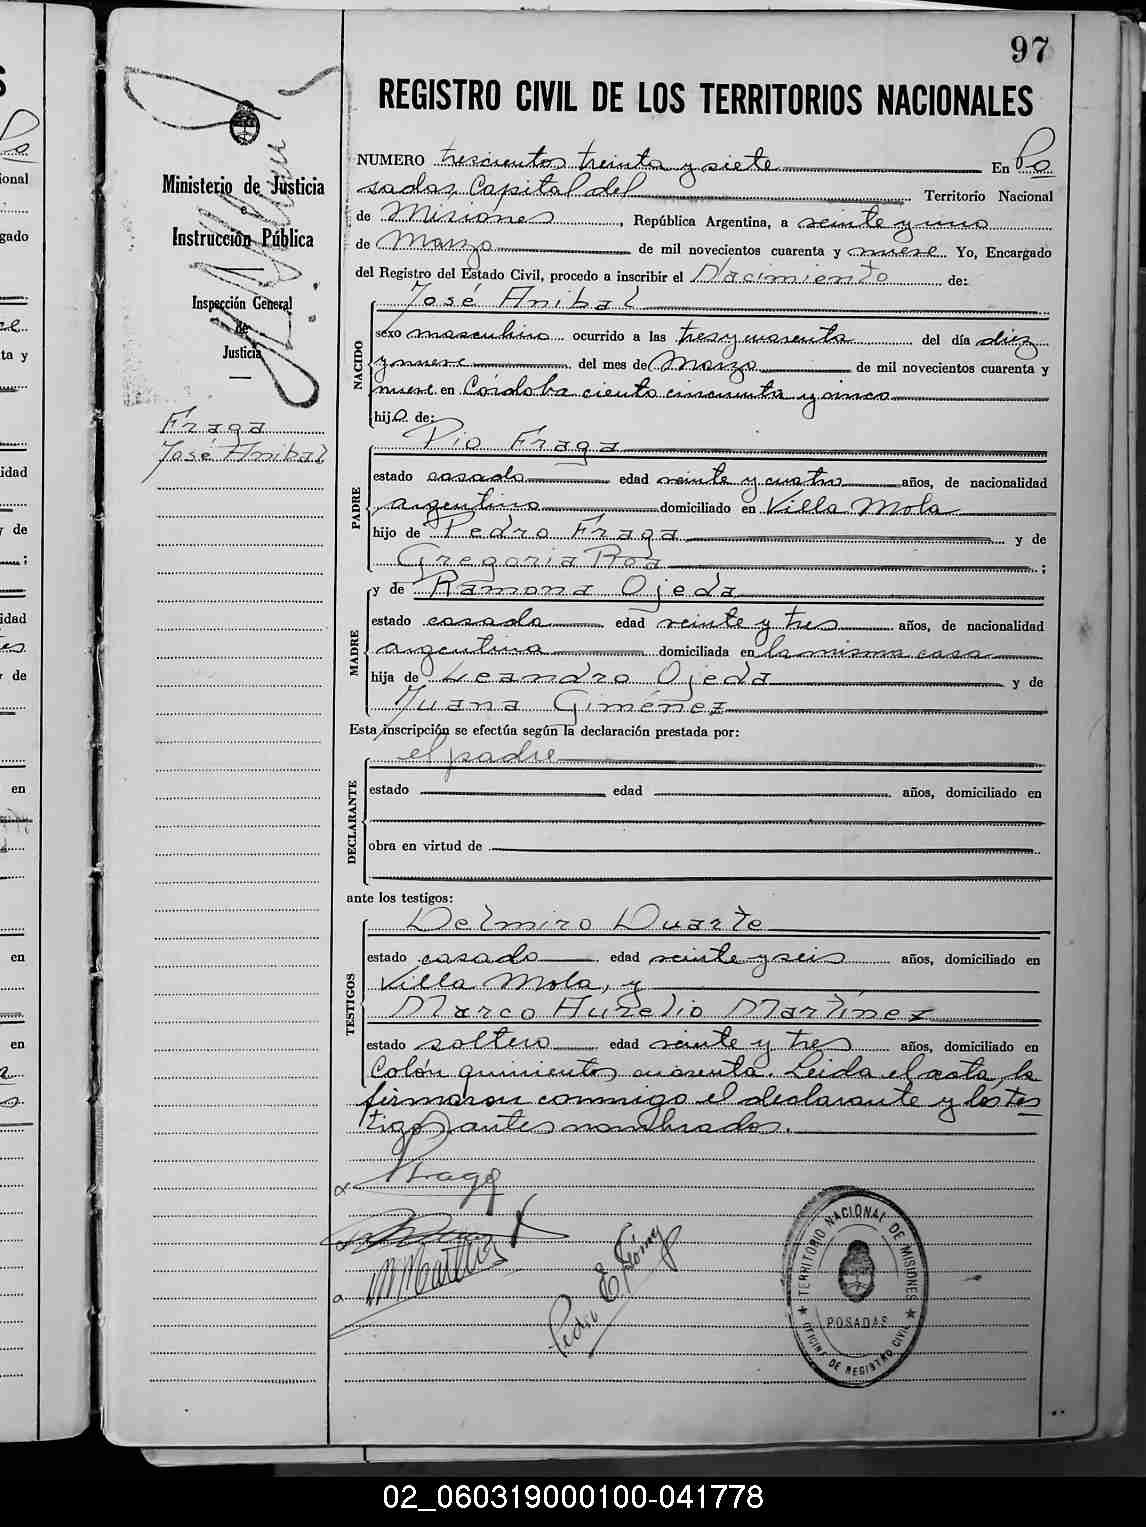 97
REGISTRO CIVIL DE LOS TERRITORIOS NACIONALES
Ministerio de Justicia
e
Instrucción Pública
Inspección General
de
Justicia
Fraga
José Anibal
NUMERO trescientos treinta y siete En Po
sadas, Capital del Territorio Nacional
de Misiones, República Argentina, a veinte y uno
de Marzo de mil novecientos cuarenta y nueve Yo, Encargado
del Registro del Estado Civil, procedo a inscribir el Nacimiento de:
NACIDO
José Anibal
sexo masculino ocurrido a las tres y cuarenta del día diez
y nueve del mes de Marzo de mil novecientos cuarenta y
nueve en Córdoba ciento cincuenta y cinco
hijo de:
PADRE
Pío Fraga
estado casado edad veinte y cuatro años, de nacionalidad
argentino domiciliado en Villa Mola
hijo de Pedro Fraga y de
Gregoria Roa ;
MADRE
y de Ramona Ojeda
estado casada edad veinte y tres años, de nacionalidad
argentina domiciliada en la misma casa
hija de Leandro Ojeda y de
Juana Giménez
Esta inscripción se efectúa según la declaración prestada por:
DECLARANTE
el padre
estado edad años, domiciliado en
obra en virtud de
ante los testigos:
TESTIGOS
Delmiro Duarte
estado casado edad veinte y seis años, domiciliado en
Villa Mola, y
Marco Aurelio Martínez
estado soltero edad veinte y tres años, domiciliado en
Colón quinientos cuarenta. Leida el acta, la
firmaron conmigo el declarante y los tes
tigos antes nombrados.
Fraga
Pedro E. Gómez
TERRITORIO NACIONAL DE MISIONES
POSADAS
OFICINA DE REGISTRO CIVIL
02_060319000100-041778